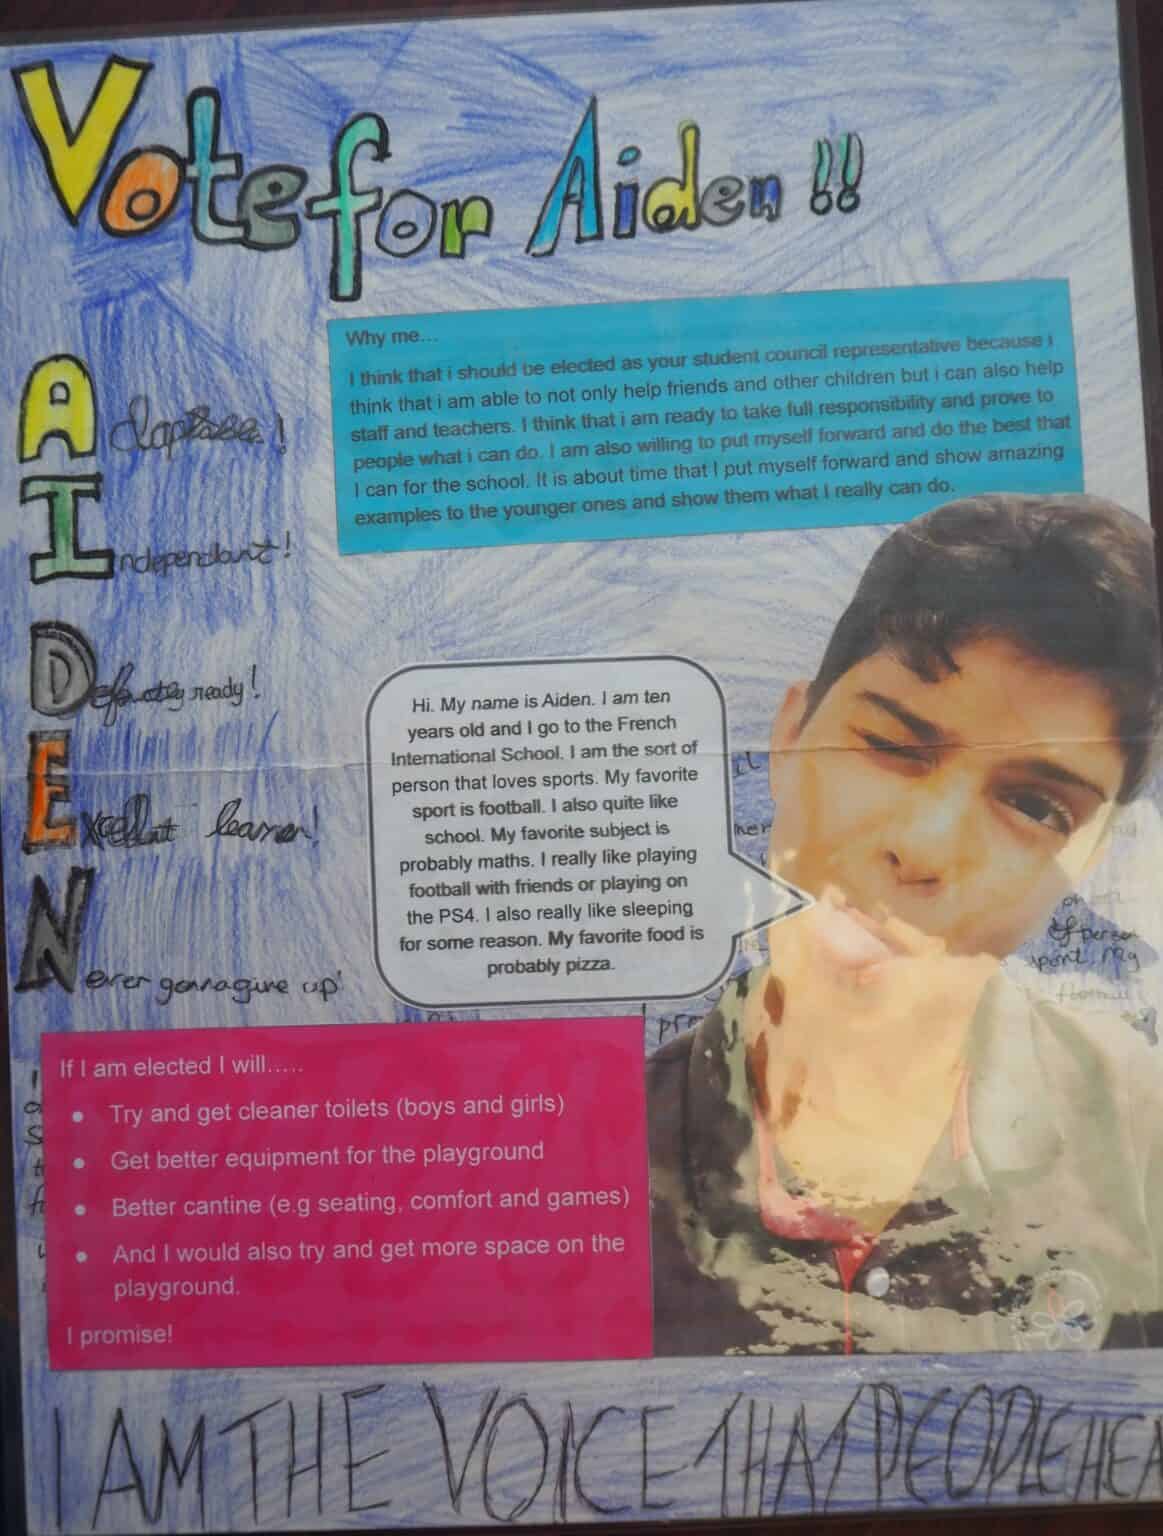 Vote for Aiden !!
Why me...
I think that i should be elected as your student council representative because I
think that i am able to not only help friends and other children but i can also help
staff and teachers. I think that i am ready to take full responsibility and prove to
people what i can do. I am also willing to put myself forward and do the best that
I can for the school. It is about time that I put myself forward and show amazing
examples to the younger ones and show them what I really can do.
A
Independant!
Definately ready!
Excellent learner!
Never gonna give up!
Hi. My name is Aiden. I am ten
years old and I go to the French
International School. I am the sort of
person that loves sports. My favorite
sport is football. I also quite like
school. My favorite subject is
probably maths. I really like playing
football with friends or playing on
the PS4. I also really like sleeping
for some reason. My favorite food is
probably pizza.
If I am elected I will.....
• Try and get cleaner toilets (boys and girls)
• Get better equipment for the playground
• Better cantine (e.g seating, comfort and games)
• And I would also try and get more space on the
playground.
I promise!
I AM THE VOICE THAT PEOPLE HEA